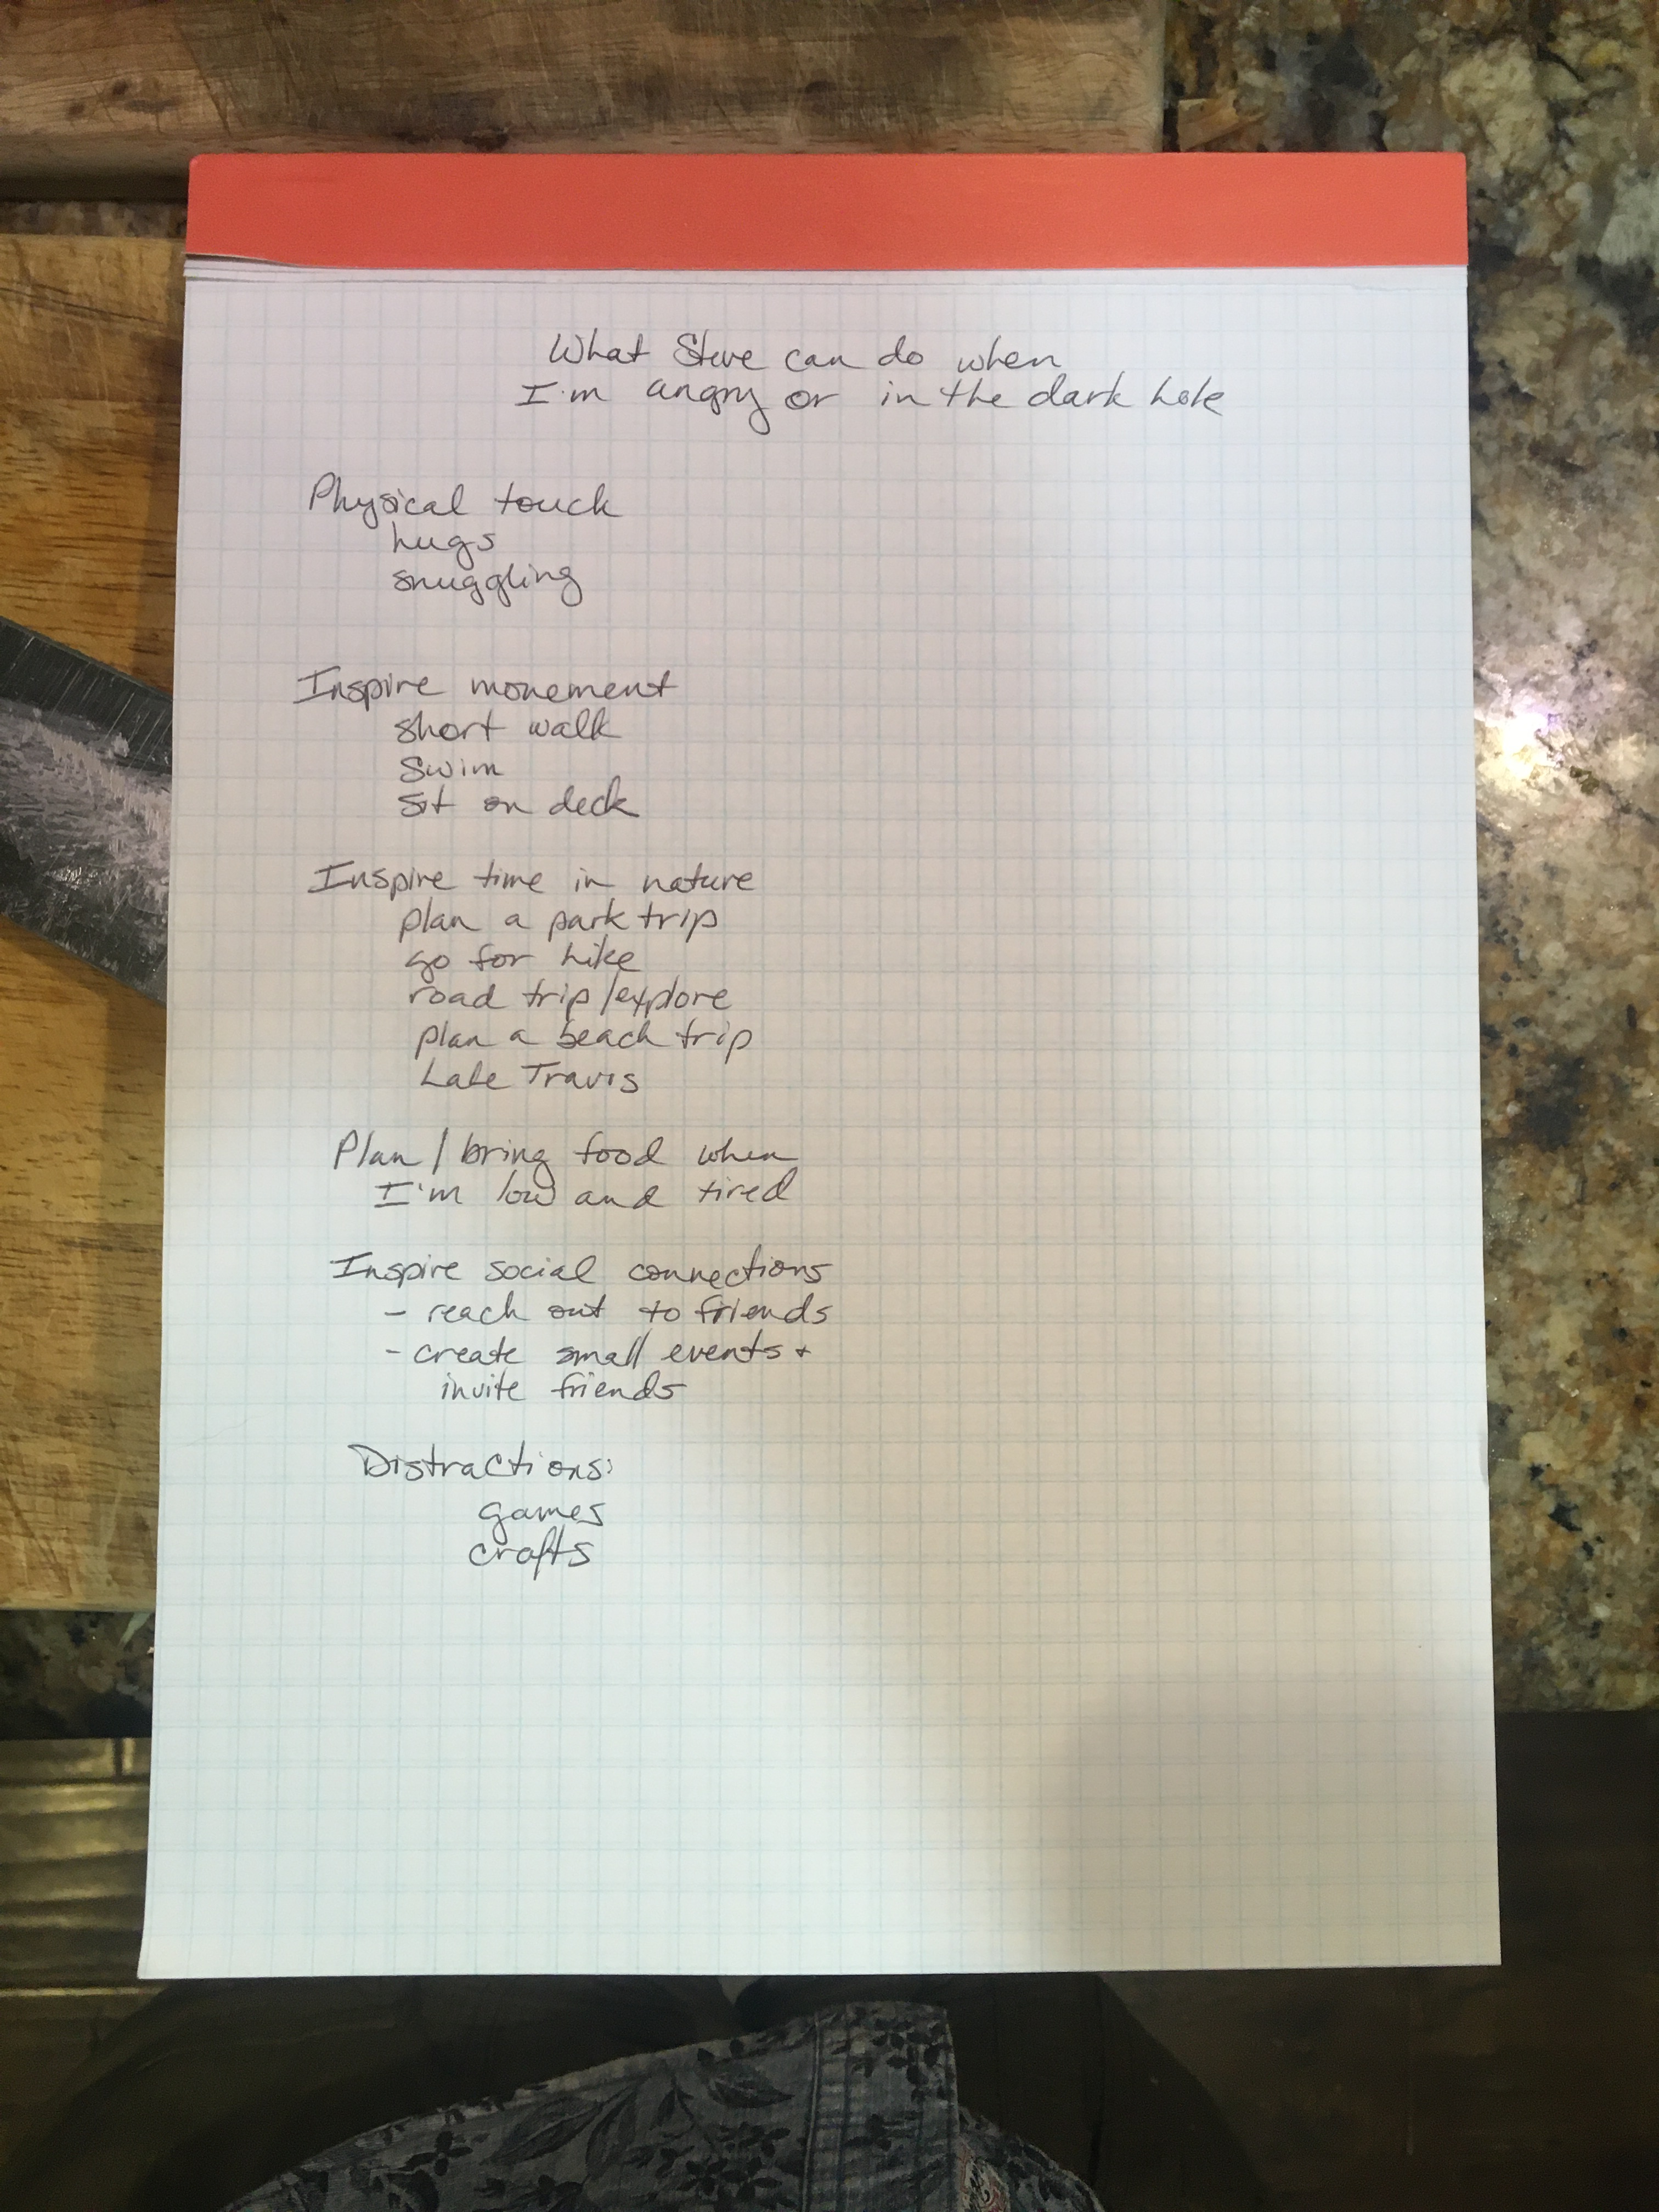 What Steve can do when
I'm angry or in the dark hole
Physical touch
hugs
snuggling
Inspire movement
short walk
swim
sit on deck
Inspire time in nature
plan a park trip
go for hike
road trip/explore
plan a beach trip
Lake Travis
Plan / bring food when
I'm low and tired
Inspire social connections
- reach out to friends
- create small events +
invite friends
Distractions:
games
crafts